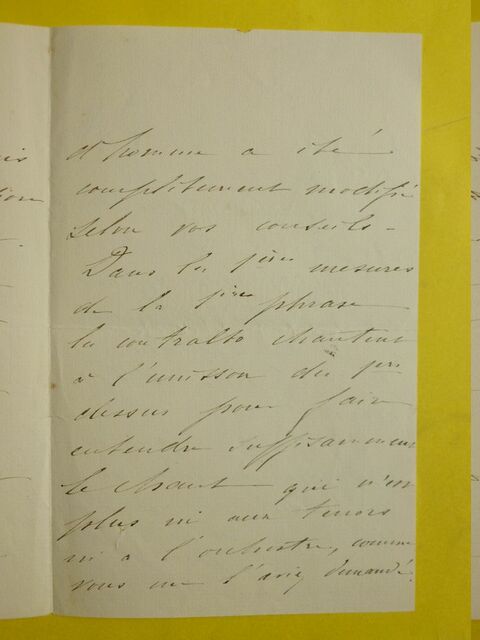 is
d'homme a été
complètement modifié
selon vos conseils -
Dans les 1ères mesures
de la 1ère phrase
les contralto chantent
à l'unisson du 1er
dessus pour faire
entendre suffisamment
le chant qui n'est
plus ni aux tenors
ni à l'orchestre, comme
vous me l'aviez demandé.